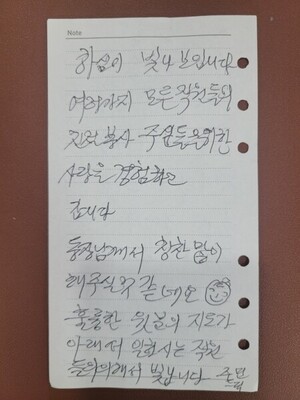 Note
빛나 보입니다
여러가지 모든 직원들의
친절 봉사 주심들을위한
사랑을 경험하고
갑니다
동장님께서 칭찬 많이
해주실것 같네요
훌륭한 윗분의 지도가
아래서 일하시는 직원
들의의해서 빛납니다 주민
드림